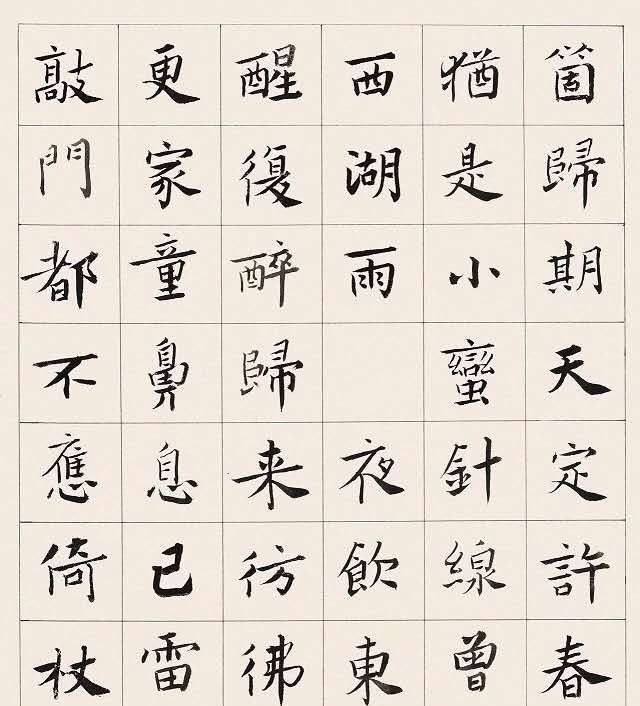 箇歸期天定許春
猶是小蠻針線曾
西湖雨 夜飲東
醒復醉歸来彷彿
更家童鼻息已雷
敲門都不應倚杖